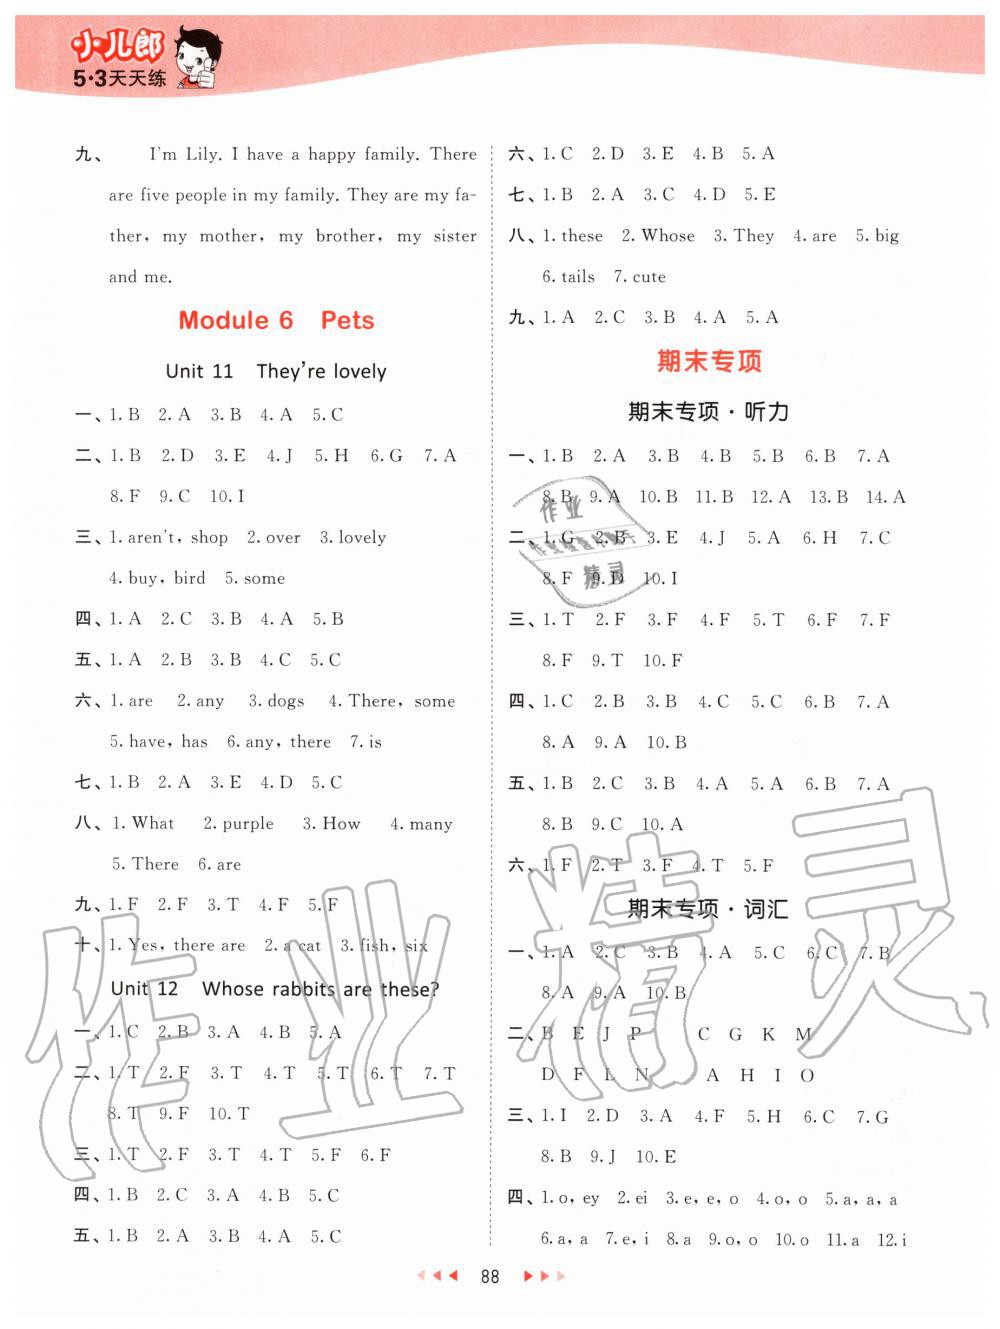 小儿郎
5·3天天练
九、 I'm Lily. I have a happy family. There
are five people in my family. They are my fa-
ther, my mother, my brother, my sister
and me.
Module 6 Pets
Unit 11 They're lovely
一、1. B 2. A 3. B 4. A 5. C
二、1. B 2. D 3. E 4. J 5. H 6. G 7. A
8. F 9. C 10. I
三、1. aren't, shop 2. over 3. lovely
4. buy, bird 5. some
四、1. A 2. C 3. B 4. A 5. B
五、1. A 2. B 3. B 4. C 5. C
六、1. are 2. any 3. dogs 4. There, some
5. have, has 6. any, there 7. is
七、1. B 2. A 3. E 4. D 5. C
八、1. What 2. purple 3. How 4. many
5. There 6. are
九、1. F 2. F 3. T 4. F 5. F
十、1. Yes, there are 2. a cat 3. fish, six
Unit 12 Whose rabbits are these?
一、1. C 2. B 3. A 4. B 5. A
二、1. T 2. F 3. T 4. T 5. T 6. T 7. T
8. T 9. F 10. T
三、1. T 2. F 3. T 4. T 5. F 6. F
四、1. B 2. C 3. A 4. B 5. C
五、1. B 2. A 3. B 4. A 5. C
六、1. C 2. D 3. E 4. B 5. A
七、1. B 2. A 3. C 4. D 5. E
八、1. these 2. Whose 3. They 4. are 5. big
6. tails 7. cute
九、1. A 2. C 3. B 4. A 5. A
期末专项
期末专项·听力
一、1. B 2. A 3. B 4. B 5. B 6. B 7. A
8. B 9. A 10. B 11. B 12. A 13. B 14. A
二、1. G 2. B 3. E 4. J 5. A 6. H 7. C
8. F 9. D 10. I
三、1. T 2. F 3. F 4. F 5. T 6. F 7. F
8. F 9. T 10. F
四、1. C 2. B 3. B 4. C 5. C 6. B 7. A
8. A 9. A 10. B
五、1. B 2. C 3. B 4. A 5. A 6. B 7. A
8. B 9. C 10. A
六、1. F 2. T 3. F 4. T 5. F
期末专项·词汇
一、1. A 2. C 3. B 4. A 5. C 6. C 7. B
8. A 9. A 10. B
二、B E J P C G K M
D F L N A H I O
三、1. I 2. D 3. A 4. F 5. H 6. C 7. G
8. B 9. J 10. E
四、1. o, ey 2. ei 3. e, e, o 4. o, o 5. a, a, a
6. a, a 7. e, i 8. a 9. o, o 10. o 11. a 12. i
88
作业精灵